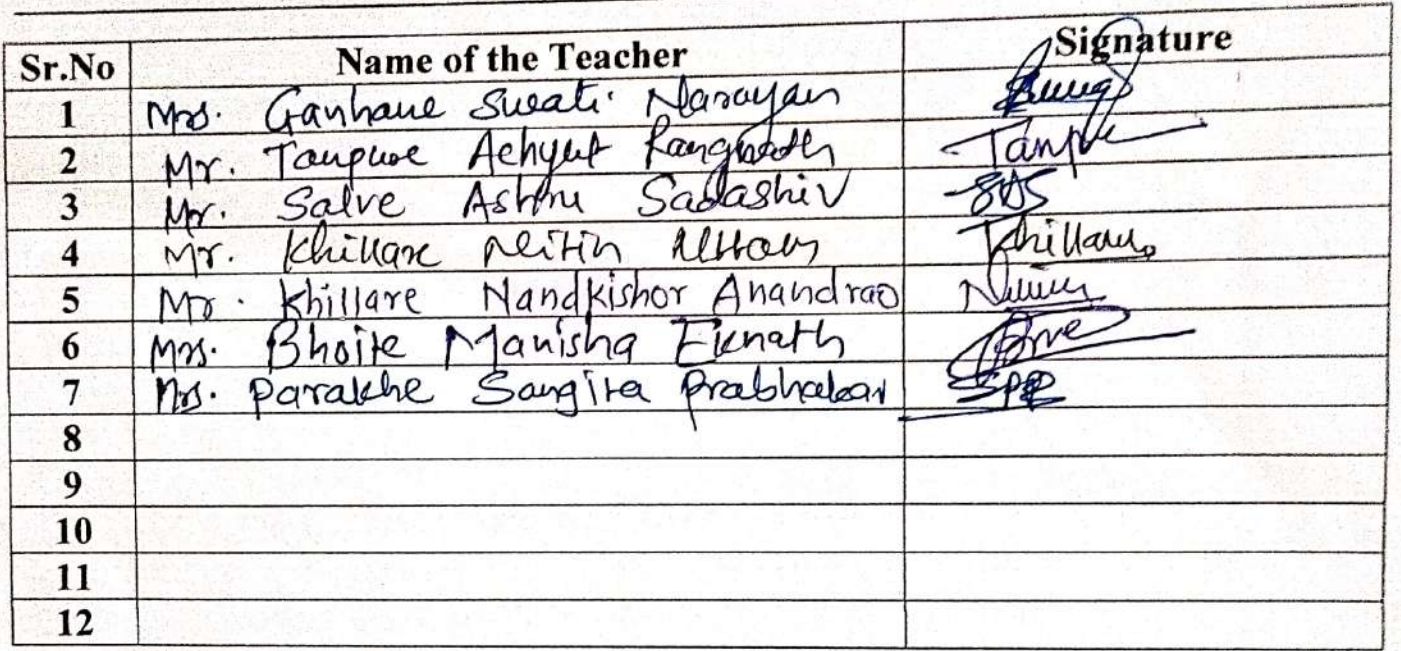 Sr.No Name of the Teacher Signature
1 Mrs. Gavhane Swati Narayan
2 Mr. Tanpure Achyut Rangnath Tanpure
3 Mr. Salve Ashru Sadashiv SAS
4 Mr. Khillare Nitin Uttam Khillare
5 Mr. Khillare Nandkishor Anandrao
6 Mrs. Bhoite Manisha Eknath
7 Mrs. Parakhe Sangita Prabhakar SPP
8
9
10
11
12